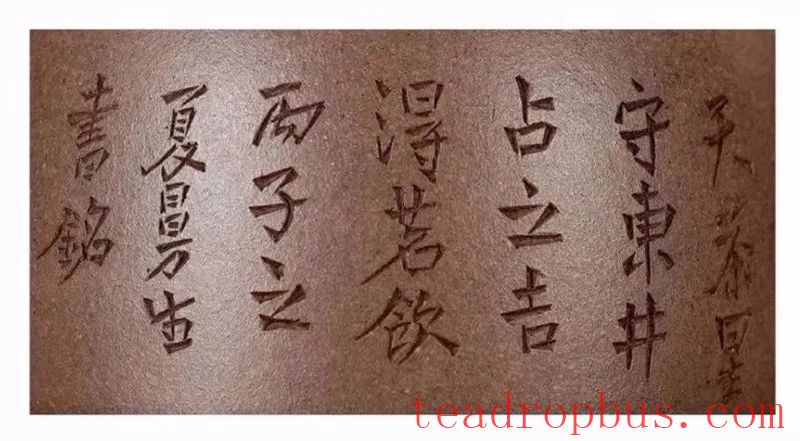 天茶星
守東井
占之吉
淂茗飲
丙子之
夏曼生
書銘
teadropbus.com